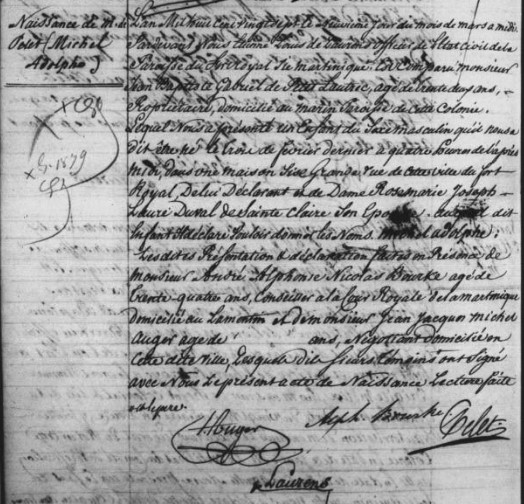 Naissance de M. de
Pelet (Michel
Adolphe)
L'an Mil huit cent vingt sept le neuvième jour du mois de mars a midi
Pardevant Nous Etienne Louis de Laurens officier de l'état civil de la
Paroisse du fort royal ile martinique Est Comparu monsieur
Jean Baptiste Gabriël de Pelet Lautrec, agé de trente deux ans,
Propriétaire, domicilié au marin Paroisse de cette Colonie.
Lequel Nous a présenté un Enfant du Sexe masculin qu'il nous a
dit être né le Trois de février dernier a quatre heures de l'après
midi, dans une maison Sise Grande rue de cette ville du fort
Royal, De lui Déclarant et de Dame Rosemarie Joseph
Laure Duval de Sainte Claire Son Epouse. auquel dit
Enfant Il déclare vouloir donner les Noms Michel adolphe;
Les dites Présentation & déclaration faites en Présence de
monsieur André Alphonse Nicolas Bourke agé de
trente quatre ans, Conseiller a la Cour Royale de la martinique
domicilié au Lamentin et de monsieur Jean Jacques michel
Auger agé de ans, Négociant domicilié en
Cette dite ville, Lesquels dits sieurs témoins ont Signé
avec Nous le présent acte de Naissance Lecture faite
Auger
Alph. Bourke
Pelet
Laurens